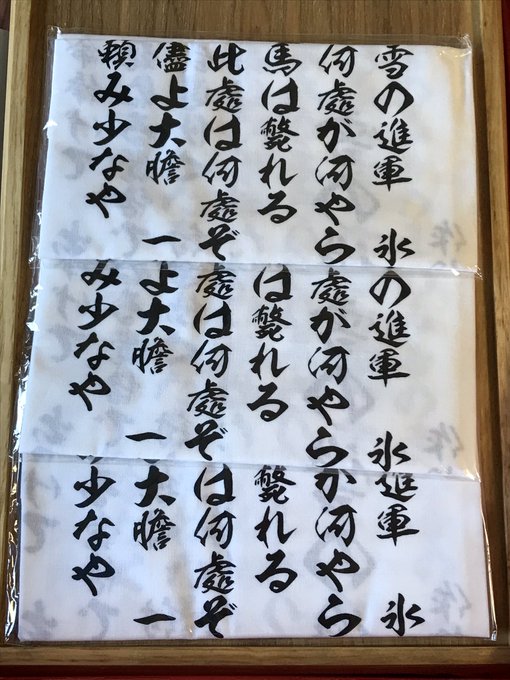 雪の進軍 氷
何處が河やら
馬は斃れる
此處は何處ぞ
儘よ大膽 一
頼み少なや
の進軍 氷
處が河やら
は斃れる
處は何處ぞ
よ大膽 一
み少なや
進軍 氷
が河やら
斃れる
は何處ぞ
大膽 一
少なや